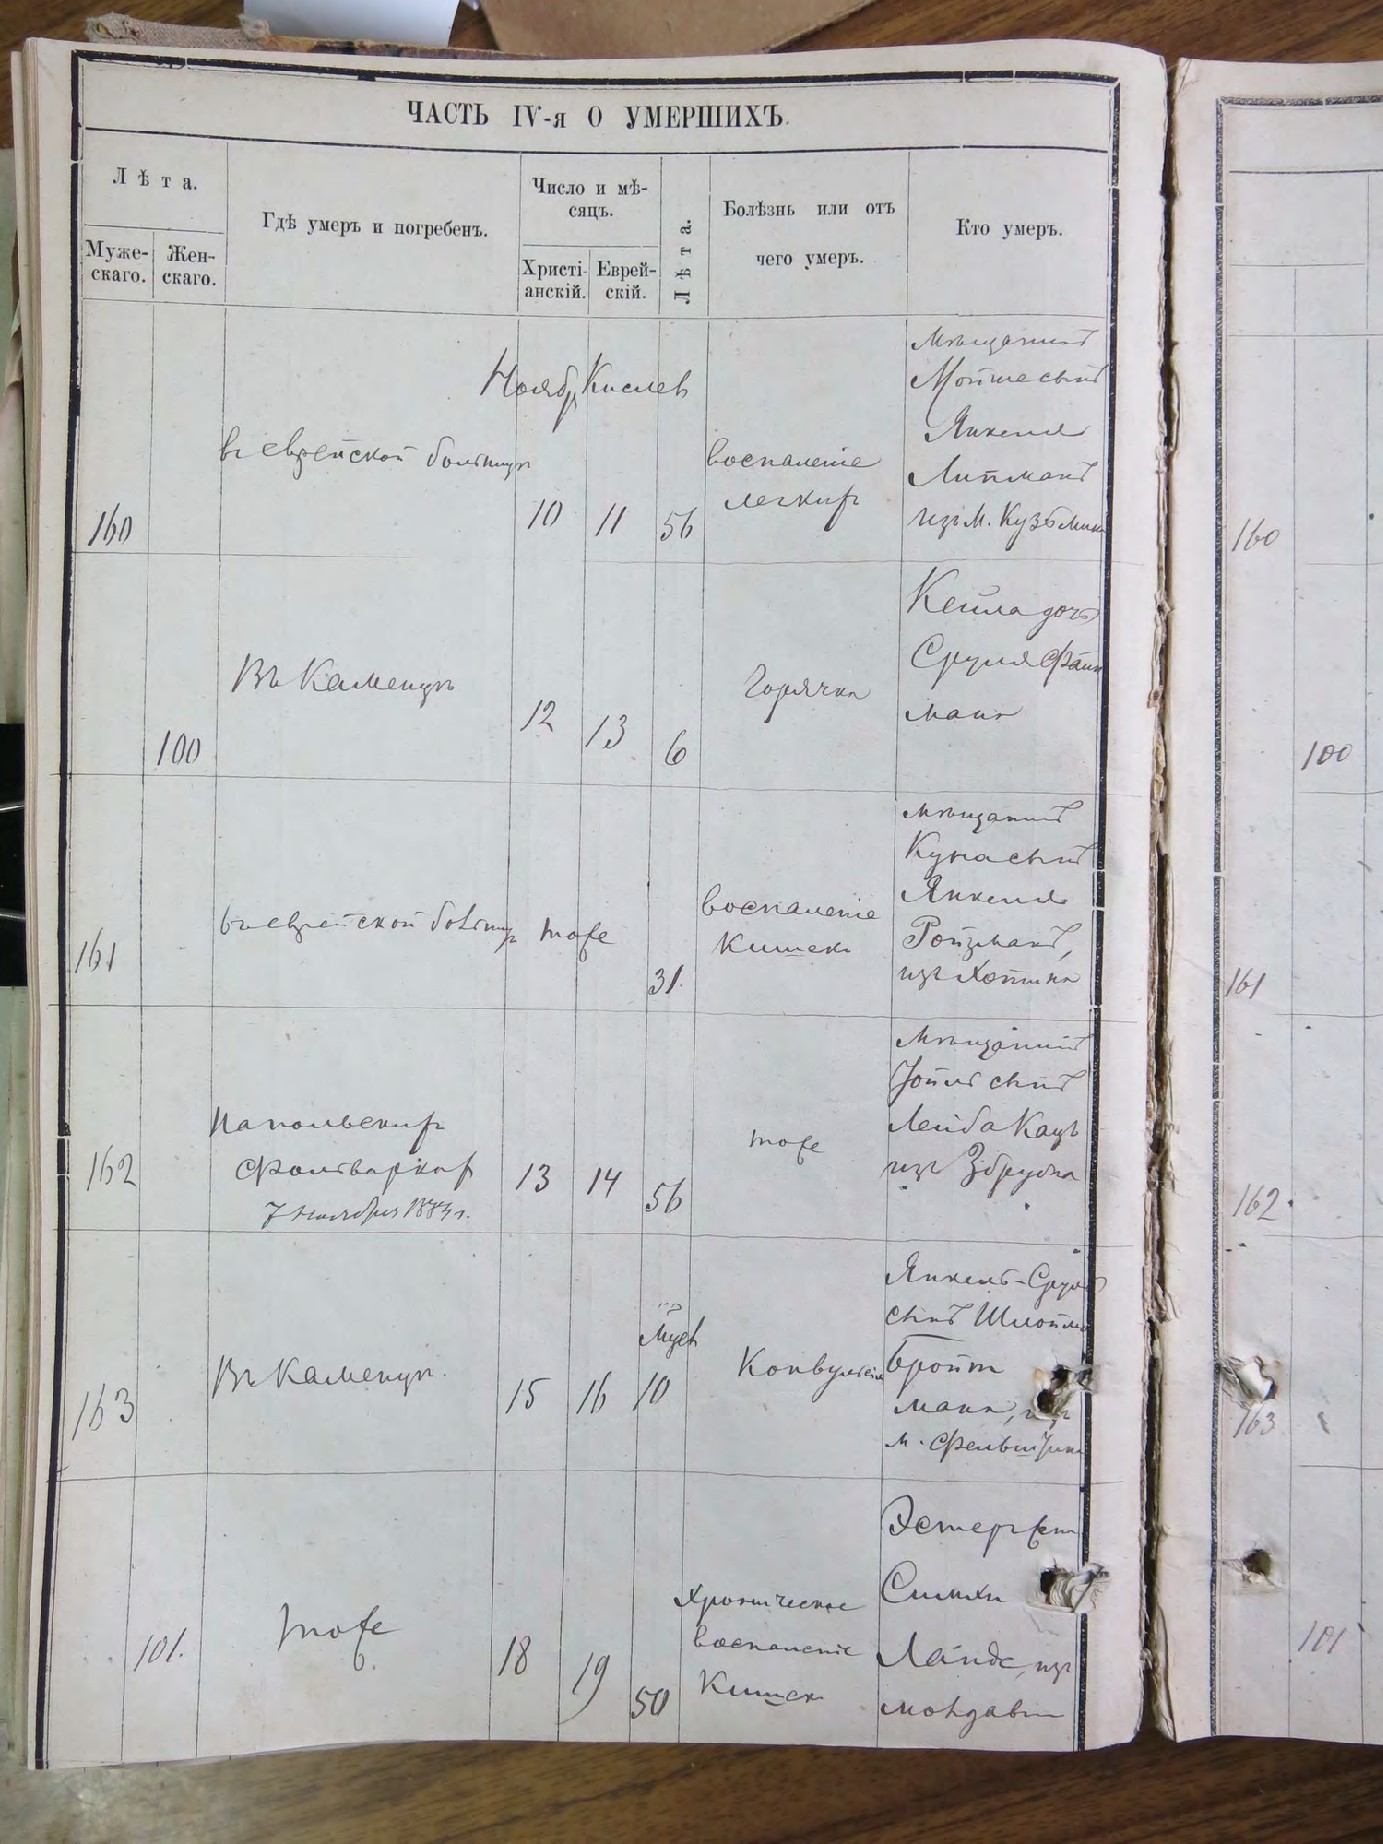 ЧАСТЬ IV-я О УМЕРШИХЪ.
Лѣта.
Муже-
скаго.
Жен-
скаго.
Гдѣ умеръ и погребенъ.
Число и мѣ-
сяцъ.
Христі-
анскій.
Еврей-
скій.
Лѣта.
Болѣзнь или отъ
чего умеръ.
Кто умеръ.
Ноябр Кислев
160
въ еврейской больницѣ
10
11
56
воспаленіе
легкихъ
мѣщанинъ
Мойше сынъ
Янкеля
Липманъ
изъ м. Кузьмина
100
Въ Каменцѣ
12
13
6
Горячка
Кейла дочь
Сруля Файн
мана
161
въ еврейской больницѣ
тоже
31
воспаленіе
Кишекъ
мѣщанинъ
Куна сынъ
Янкеля
Ройзманъ,
изъ Хотина
162
На польскихъ
фольваркахъ
7 ноября 1883 г.
13
14
56
тоже
мѣщанинъ
сынъ
Лейба Кацъ
изъ Збруча
163
Въ Каменцѣ
15
16
Мцев
10
Конвульсія
Янкель-Сруль
сынъ Шлоймы
Бройт
мана, изъ
м.
101.
тоже
18
19
50
хроническое
воспаленіе
Кишек
Эстер
Симхи
Ландс, из
молдавіи
160
100
161
162
163
101